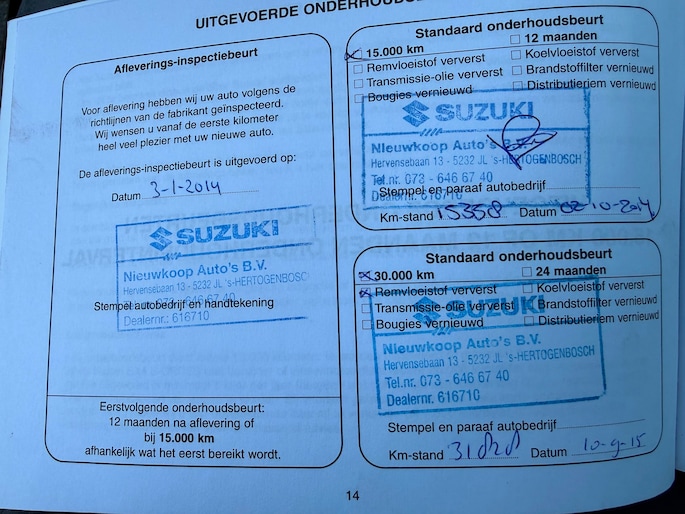 UITGEVOERDE
Afleverings-inspectiebeurt
Voor aflevering hebben wij uw auto volgens de
richtlijnen van de fabrikant geïnspecteerd.
Wij wensen u vanaf de eerste kilometer
heel veel plezier met uw nieuwe auto.
De afleverings-inspectiebeurt is uitgevoerd op:
Datum 3-1-2014
SUZUKI
Nieuwkoop Auto's B.V.
Hervensebaan 13 - 5232 JL 's-HERTOGENBOSCH
Stempel autobedrijf en handtekening
Dealernr.: 616710
Eerstvolgende onderhoudsbeurt:
12 maanden na aflevering of
bij 15.000 km
afhankelijk wat het eerst bereikt wordt.
Standaard onderhoudsbeurt
15.000 km 12 maanden
Remvloeistof ververst Koelvloeistof ververst
Transmissie-olie ververst Brandstoffilter vernieuwd
Bougies vernieuwd Distributieriem vernieuwd
SUZUKI
Nieuwkoop Auto's B.V.
Hervensebaan 13 - 5232 JL 's-HERTOGENBOSCH
Tel.nr. 073 - 646 67 40
Stempel en paraaf autobedrijf
Dealernr.: 616710
Km-stand 15358 Datum 02 10-2014
Standaard onderhoudsbeurt
30.000 km 24 maanden
Remvloeistof ververst Koelvloeistof ververst
Transmissie-olie ververst Brandstoffilter vernieuwd
SUZUKI
Bougies vernieuwd Distributieriem vernieuwd
Nieuwkoop Auto's B.V.
Hervensebaan 13 - 5232 JL 's-HERTOGENBOSCH
Tel.nr. 073 - 646 67 40
Dealernr.: 616710
Stempel en paraaf autobedrijf
Km-stand 31828 Datum 10-9-15
14